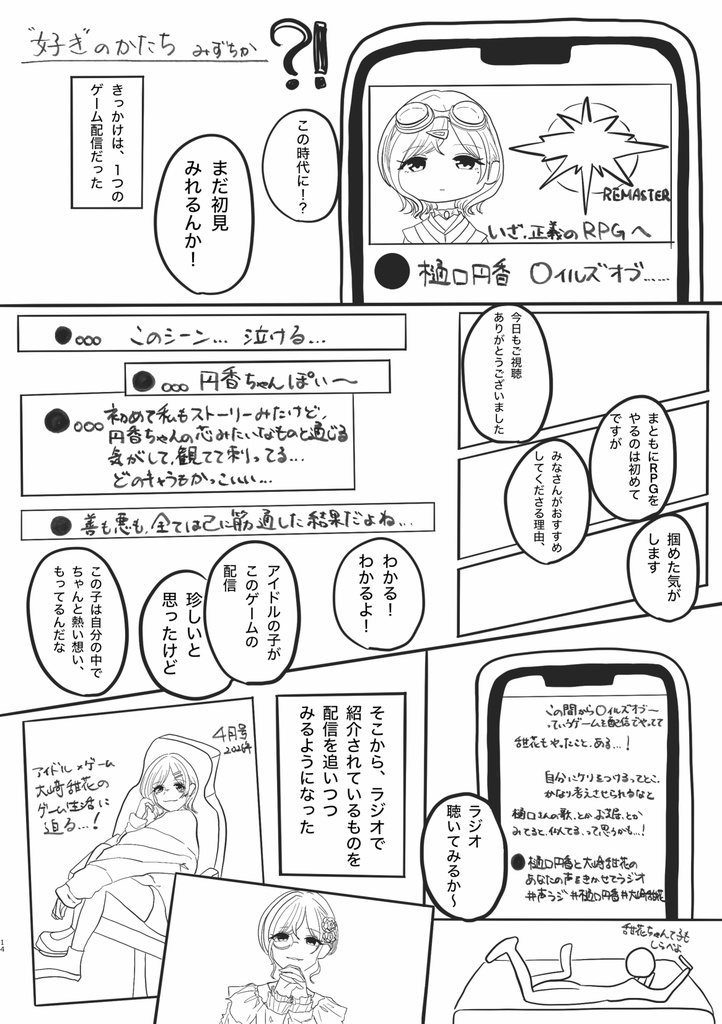 "好き"のかたち みずちか
?!
REMASTER
いざ、正義のRPGへ
樋口円香 〇イルズオブ……
この時代に!?
まだ初見
みれるんか!
きっかけは、1つの
ゲーム配信だった
今日もご視聴
ありがとうございました
まともにRPGを
やるのは初めて
ですが
みなさんがおすすめ
してくださる理由、
掴めた気が
します
このシーン… 泣ける…
円香ちゃんぽい〜
初めて私もストーリーみたけど、
円香ちゃんの芯みたいなものと通じる
気がして、観てて刺ってる…
どのキャラもかっこいい…
善も悪も、全ては己に筋通した結果だよね…
わかる!
わかるよ!
アイドルの子が
このゲームの
配信
珍しいと
思ったけど
この子は自分の中で
ちゃんと熱い想い、
もってるんだな
この間から〇イルズオブ〜
っていうゲームを配信でやってて
甜花もやったこと、ある…!
自分にケリをつけるってとこ、
かなり考えさせられるなと
樋口さんの歌、とか お芝居、とか
みてると、似てる、って思うかも…!
樋口円香と大崎甜花の
あなたの声をきかせてラジオ
#声ラジ #樋口円香 #大崎甜花
ラジオ
聴いてみるか〜
甜花ちゃんて子も
しらべよ
そこから、ラジオで
紹介されているものを
配信を追いつつ
みるようになった
4月号
2026年
アイドル×ゲーム
大崎甜花の
ゲーム生活に
迫る…!
14